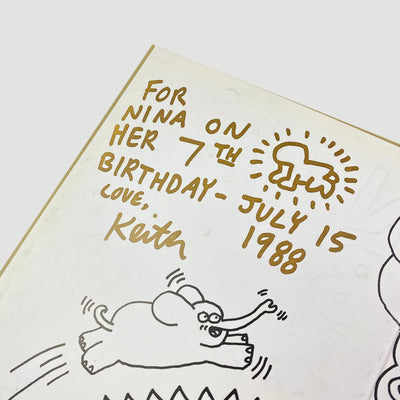 FOR
NINA ON
HER 7TH
BIRTHDAY - JULY 15
LOVE, 1988
Keith